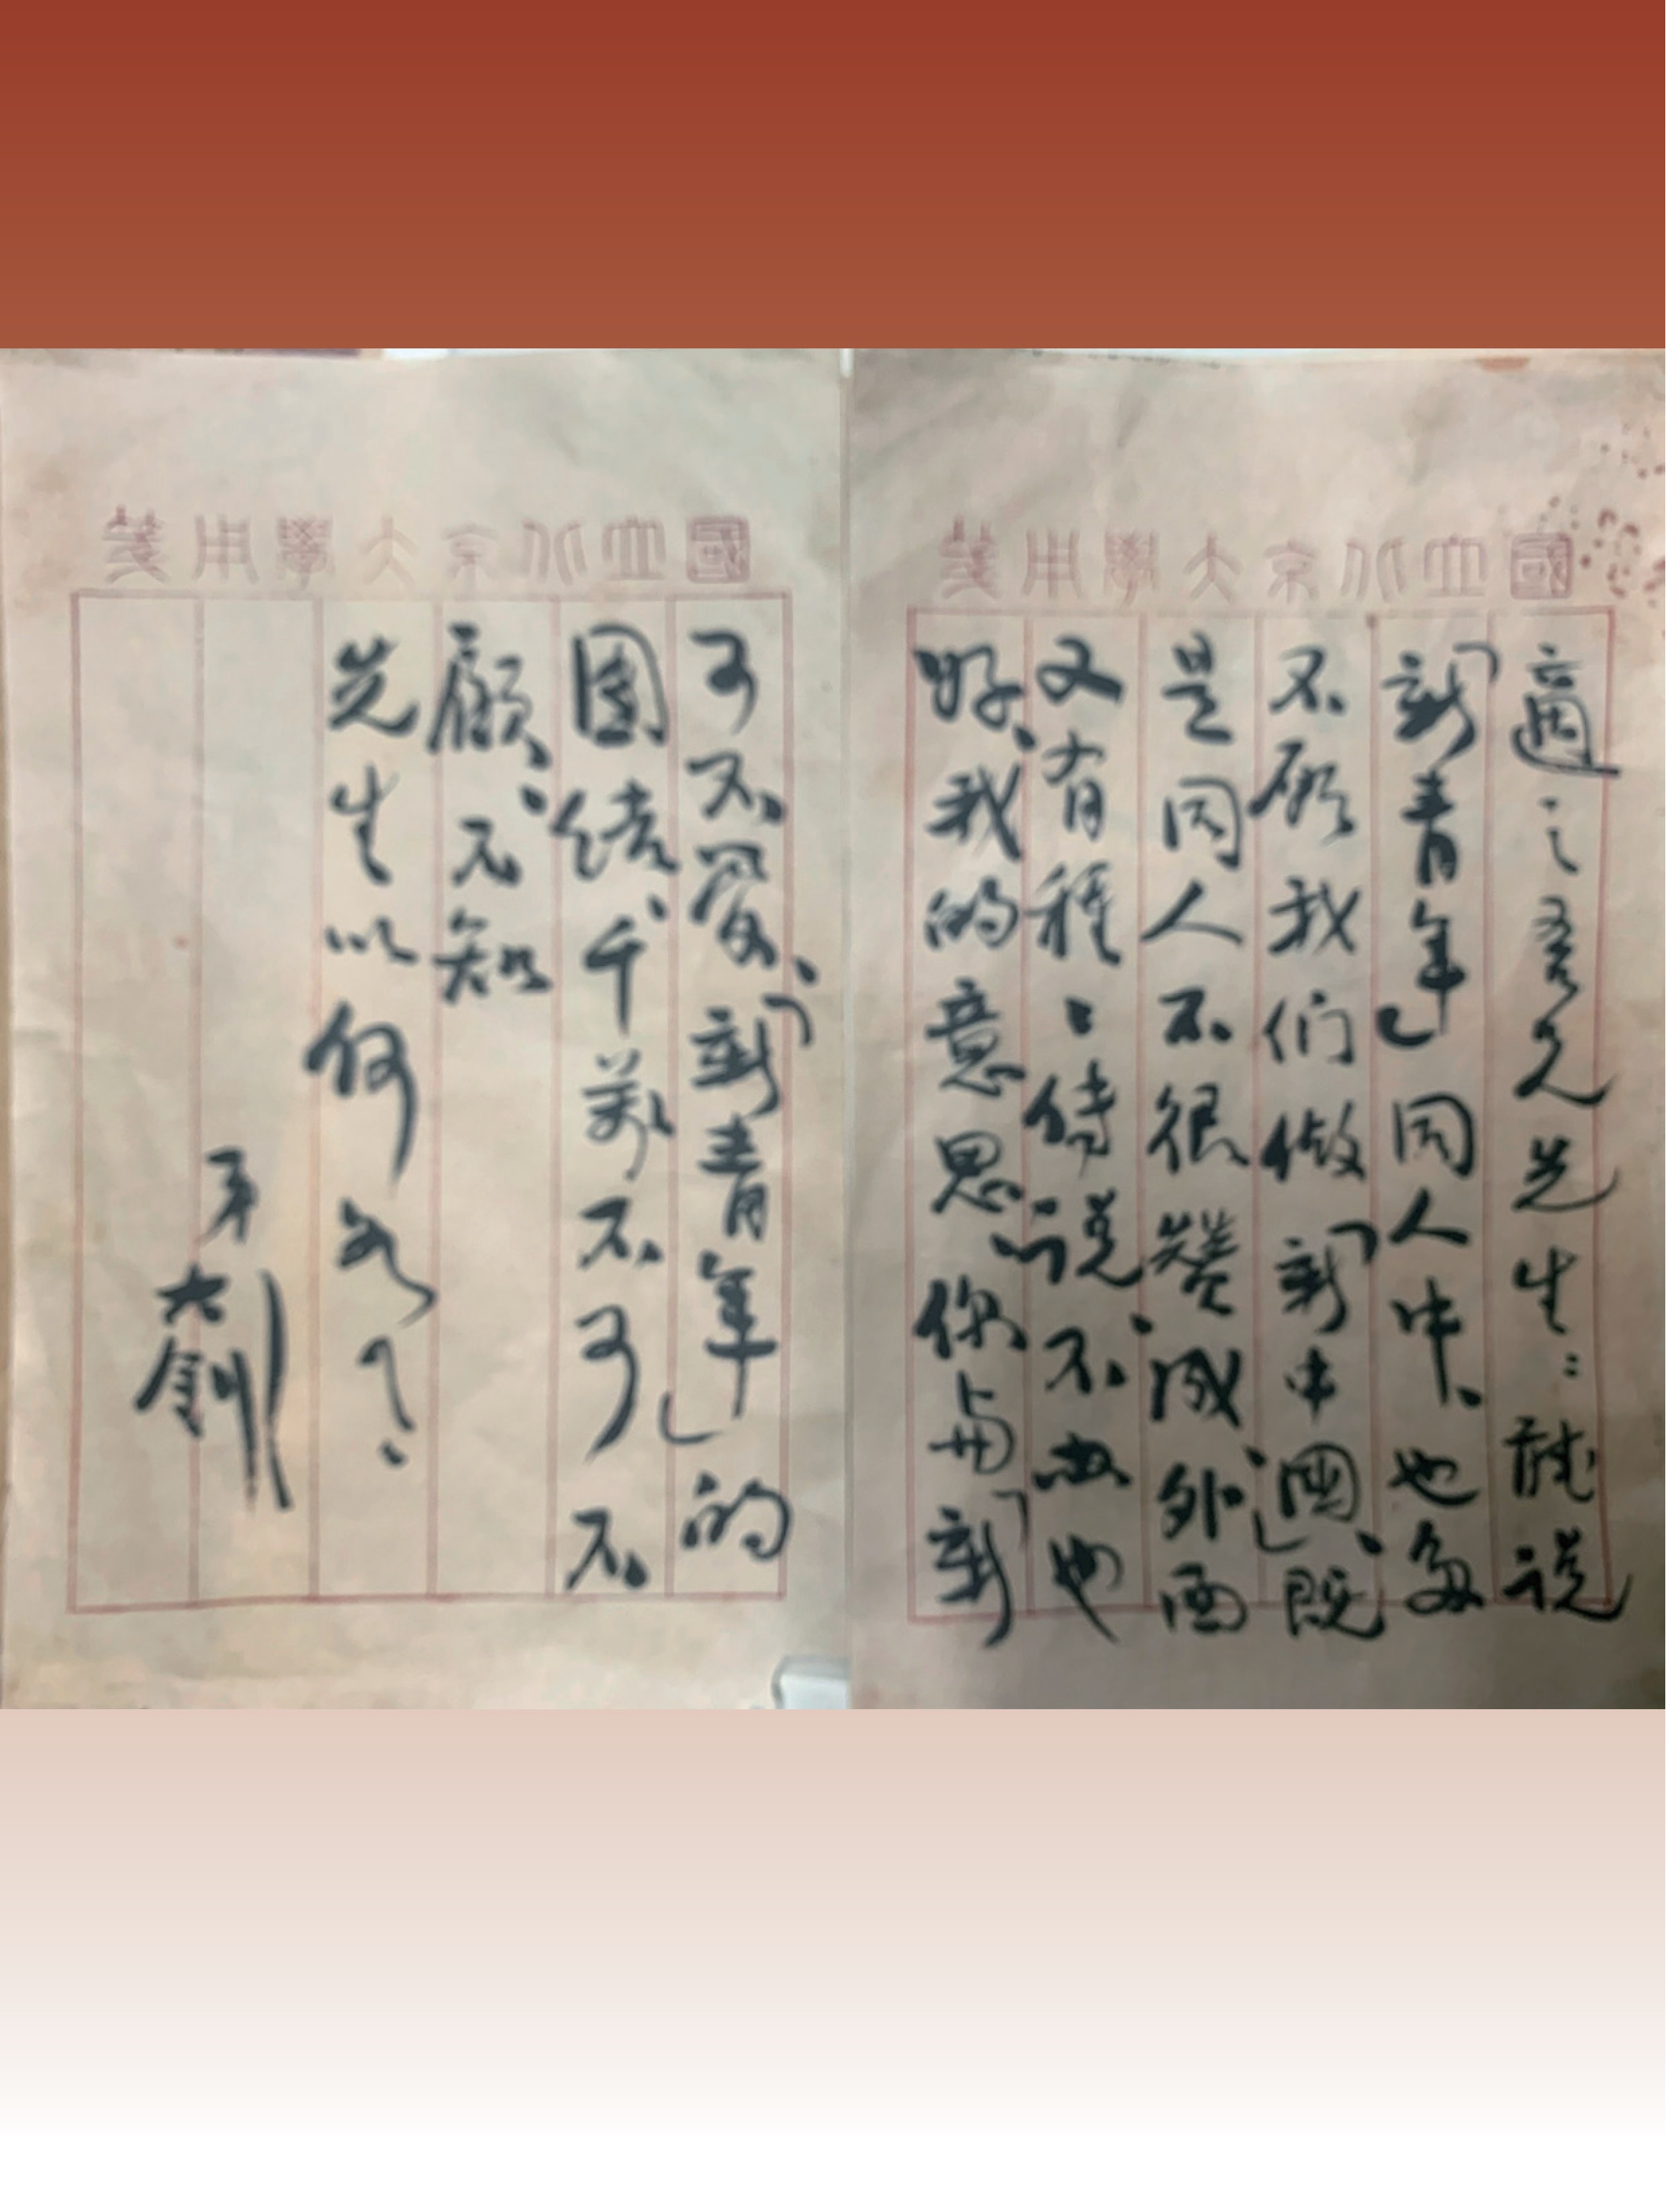 國立北京大學用箋
適之吾兄先生：聽说
「新青年」同人中、也多
不願我们做「新中國」、既
是同人不很贊成、外面
又有種〻傳说、不办也
好、我的意思、你与「新
國立北京大學用箋
可不、「新青年」的
團结、千萬不可不
顧、不知
先生以何如？
弟
大釗